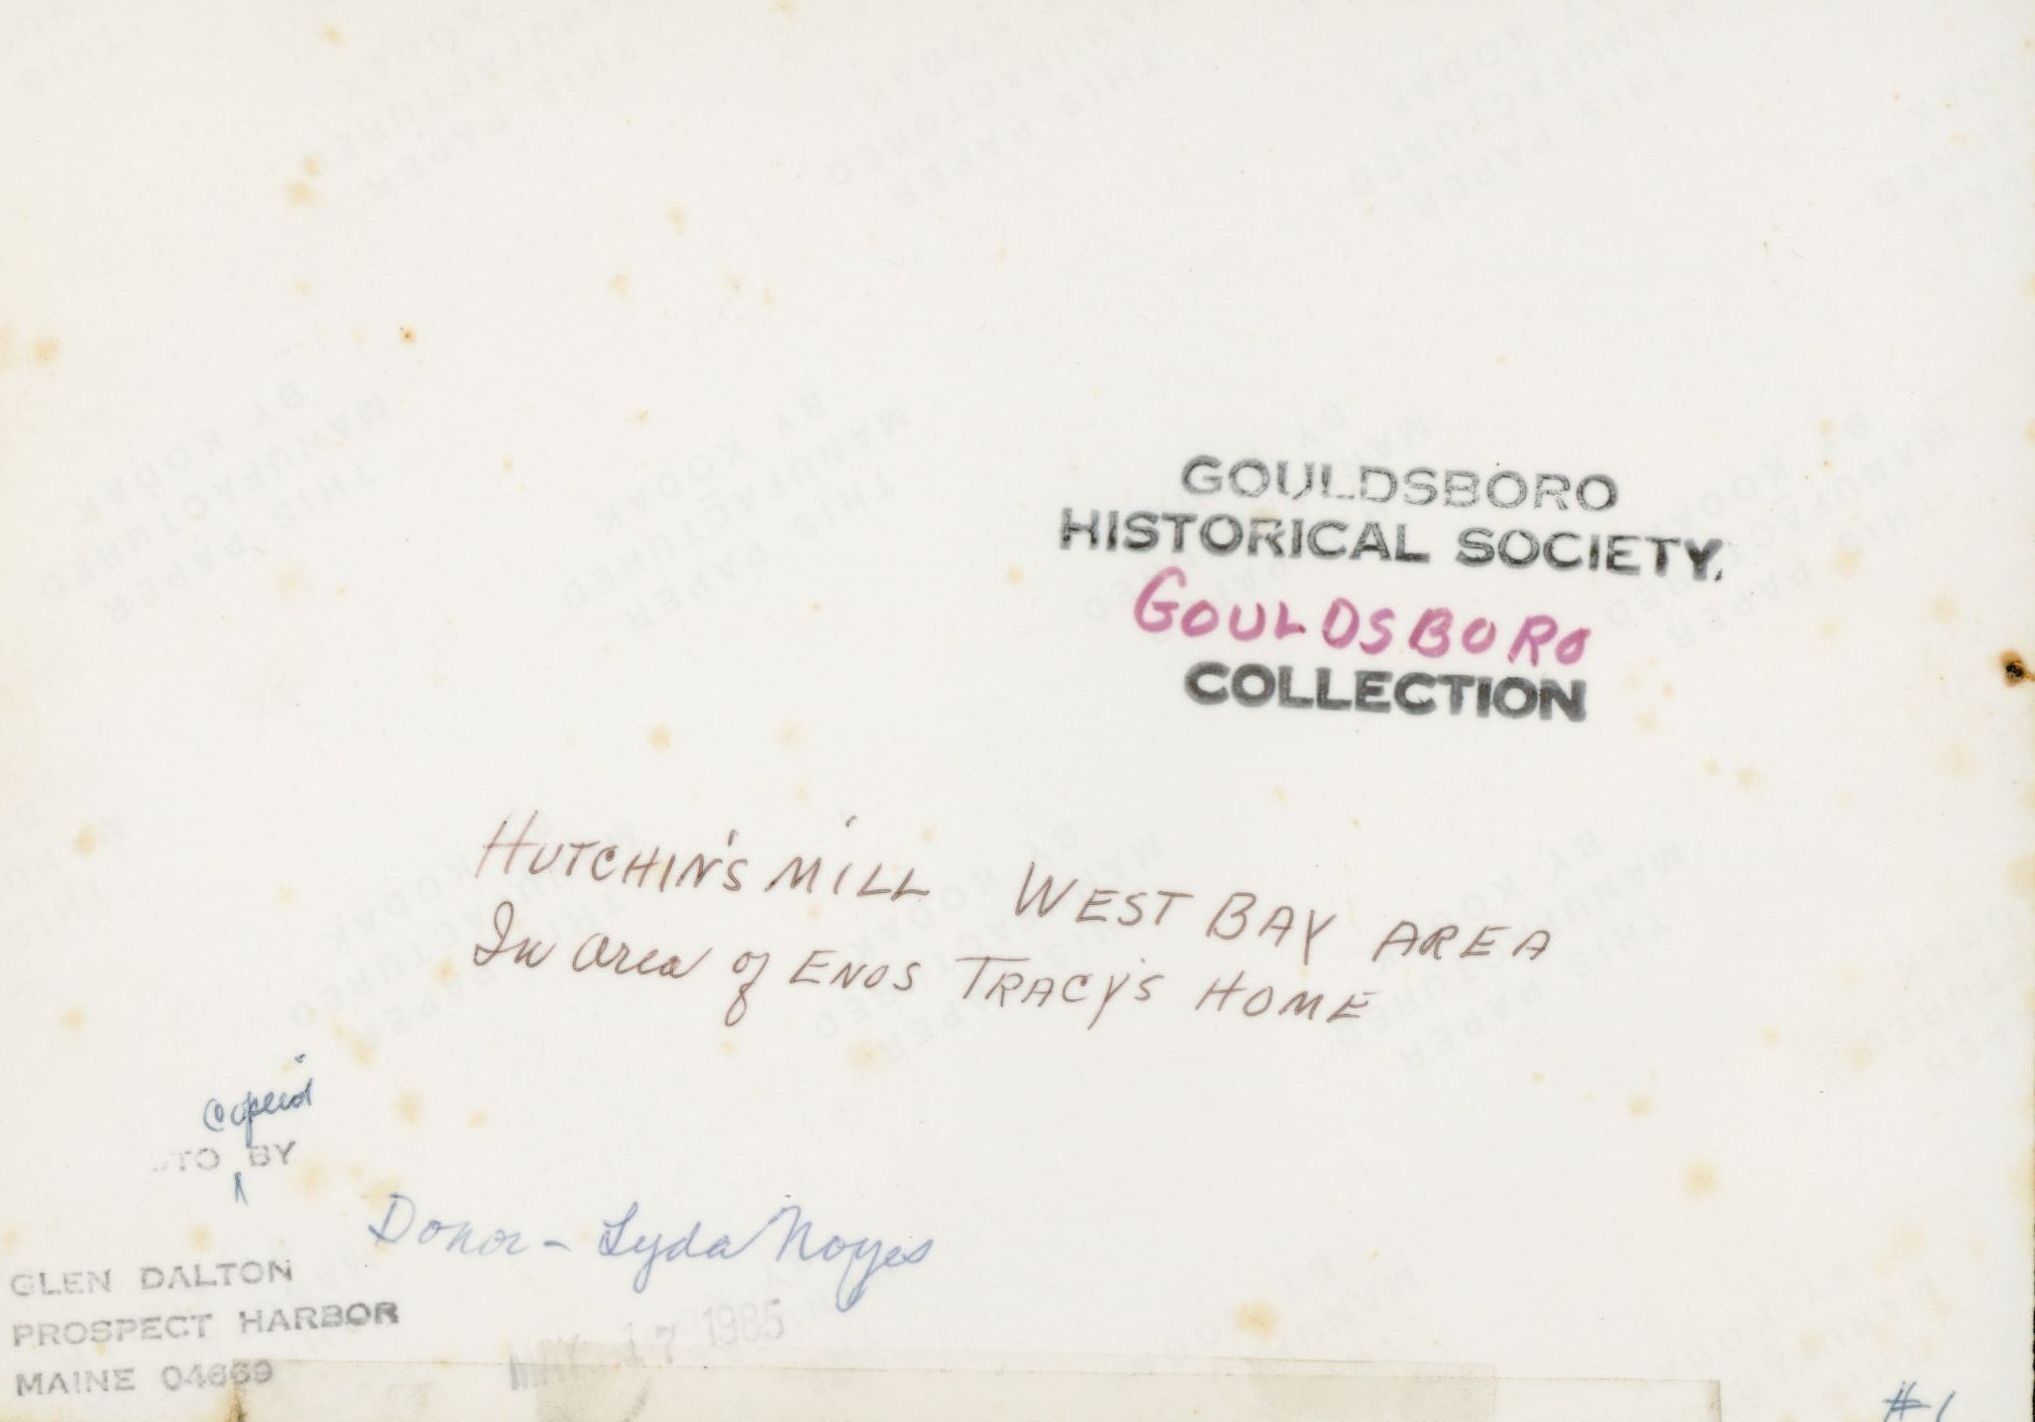 GOULDSBORO
HISTORICAL SOCIETY,
GOULDSBORO
COLLECTION
HUTCHIN'S MILL WEST BAY AREA
In area of ENOS TRACY'S HOME
Copeid
TO BY
Donor - Lyda Noyes
GLEN DALTON
PROSPECT HARBOR
MAINE 04669
MAY 17 1985
#1
THIS PAPER
MANUFACTURED
BY KODAK